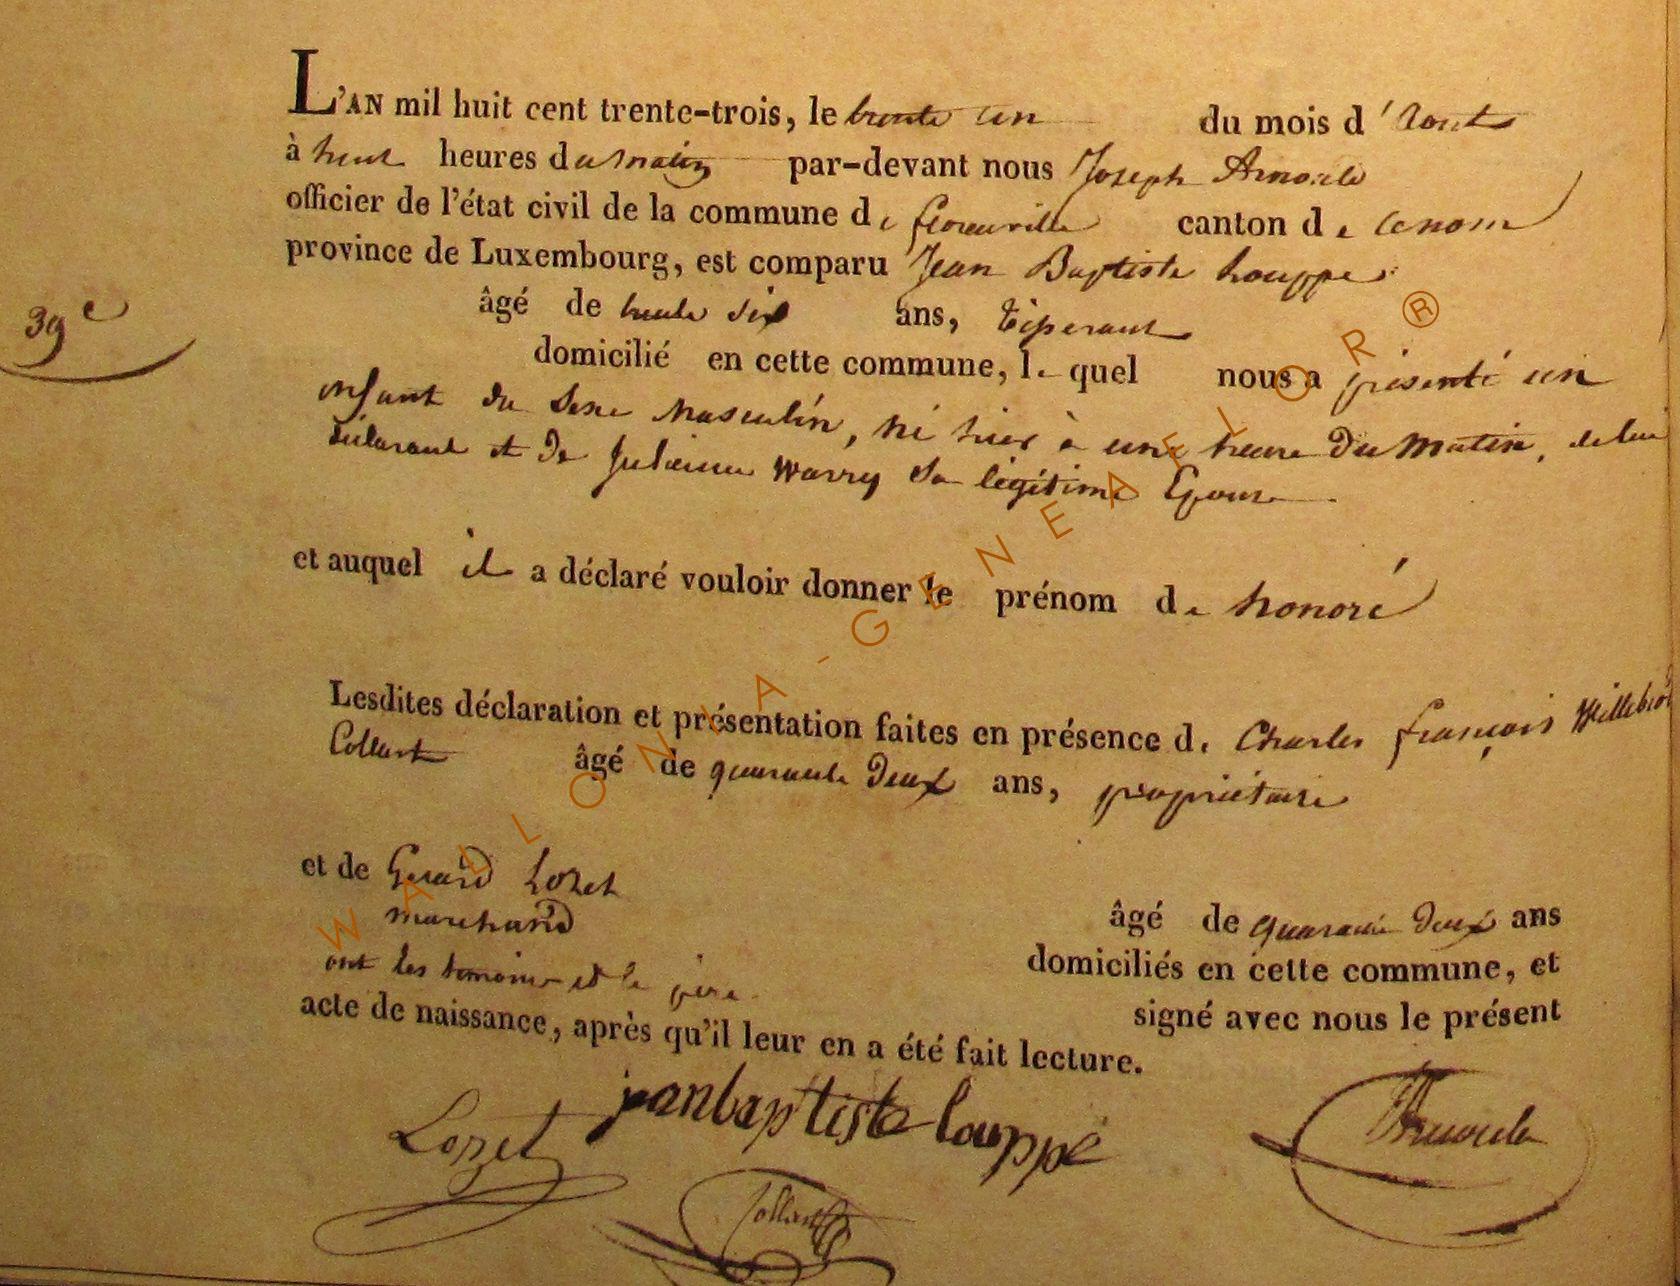 L'AN mil huit cent trente-trois, le trente un du mois d'Aout
à huit heures du matin par-devant nous Joseph Arnould
officier de l'état civil de la commune de florenville canton de ce nom
province de Luxembourg, est comparu Jean Baptiste Louppe
39e
âgé de trente six ans, Tisserant
domicilié en cette commune, le quel nous a présenté un
enfant du sexe masculin, né hier à une heure du matin, de lui
déclarant et de Julienne Warry sa légitime Epouse
et auquel il a déclaré vouloir donner le prénom de honoré
Lesdites déclaration et présentation faites en présence de Charles françois Willebror
Collart âgé de quarante deux ans, propriétaire
et de Gerard Lozet
marchand âgé de quarante deux ans
domiciliés en cette commune, et
ont les temoins et le père signé avec nous le présent
acte de naissance, après qu'il leur en a été fait lecture.
Lozet jeanbaptiste louppe Arnould
Collart
WALLONIA-GENEAFLOR®